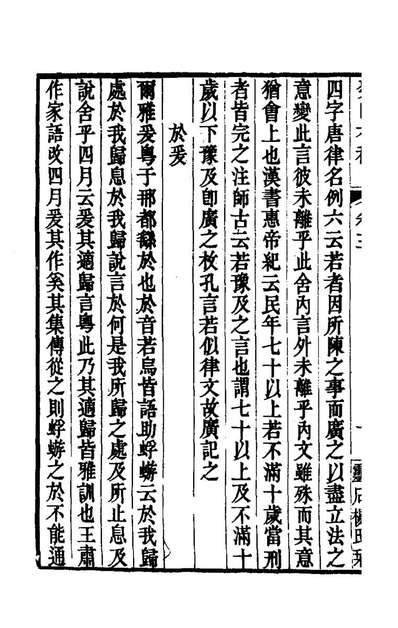 四字唐律名例六云若者因所陳之事而廣之以盡立法之
意變此言彼未離乎此舍內言外未離乎內文雖殊而其意
猶會上也漢書惠帝紀云民年七十以上若不滿十歲當刑
者皆完之注師古云若豫及之言也謂七十以上及不滿十
歲以下豫及卽廣之枚孔言若似律文故廣記之
於爰
爾雅爰粵于那都繇於也於音若烏皆語助蜉蝣云於我歸
處於我歸息於我歸說言於何是我所歸之處及所止息及
說舍乎四月云爰其適歸言粵此乃其適歸皆雅訓也王肅
作家語改四月爰其作奚其集傳從之則蜉蝣之於不能通
靈石楊氏栞